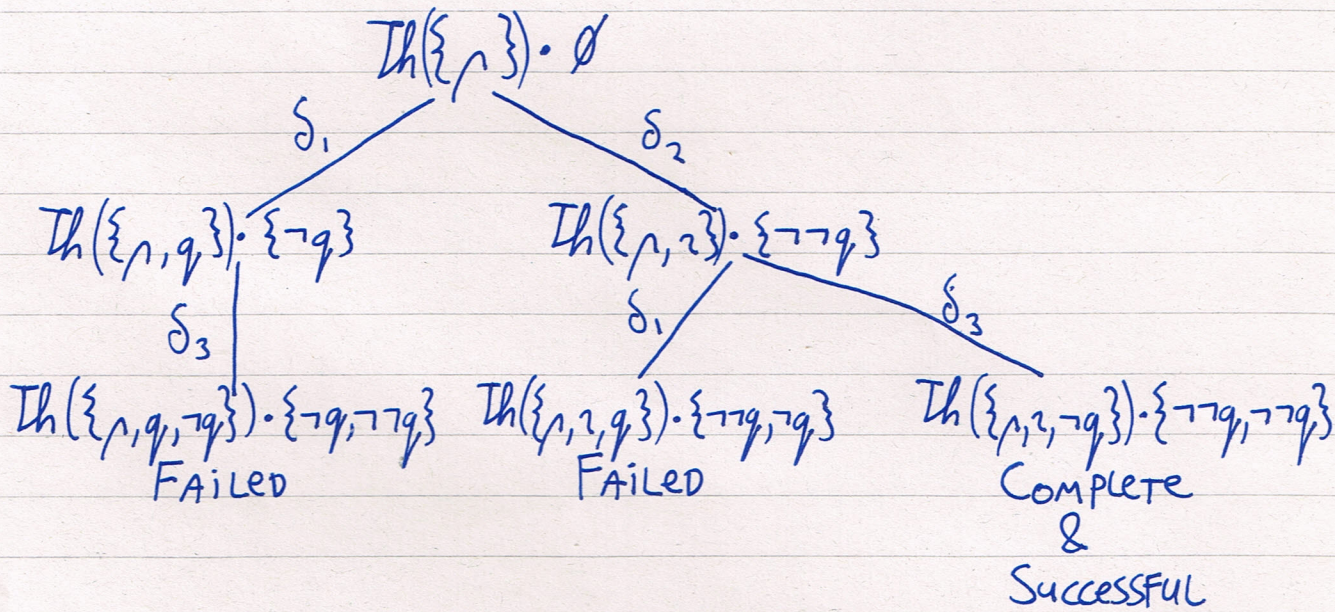 Th({p}) · ∅
δ₁ δ₂
Th({p,q}) · {¬q} Th({p,r}) · {¬¬q}
δ₃ δ₁ δ₃
Th({p,q,¬q}) · {¬q,¬¬q} Th({p,r,q}) · {¬¬q,¬q} Th({p,r,¬q}) · {¬¬q,¬¬q}
FAiLED FAiLED COMPLETE
&
SUCCESSFUL